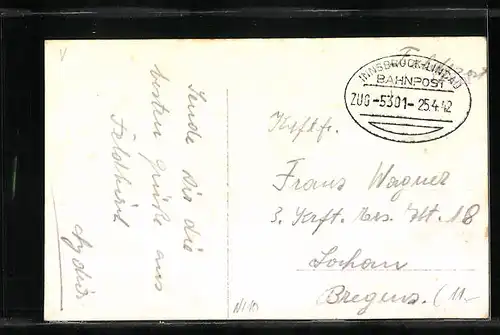 Sende dir die
besten Grüße aus
Feldkirch
Feldpost
INNSBRUCK-LINDAU
BAHNPOST
ZUG-5301-25.4.42
Kftf.
Franz Wagner
3. Krft. Ers. Abt. 18
Lochau
Bregenz. (11.-